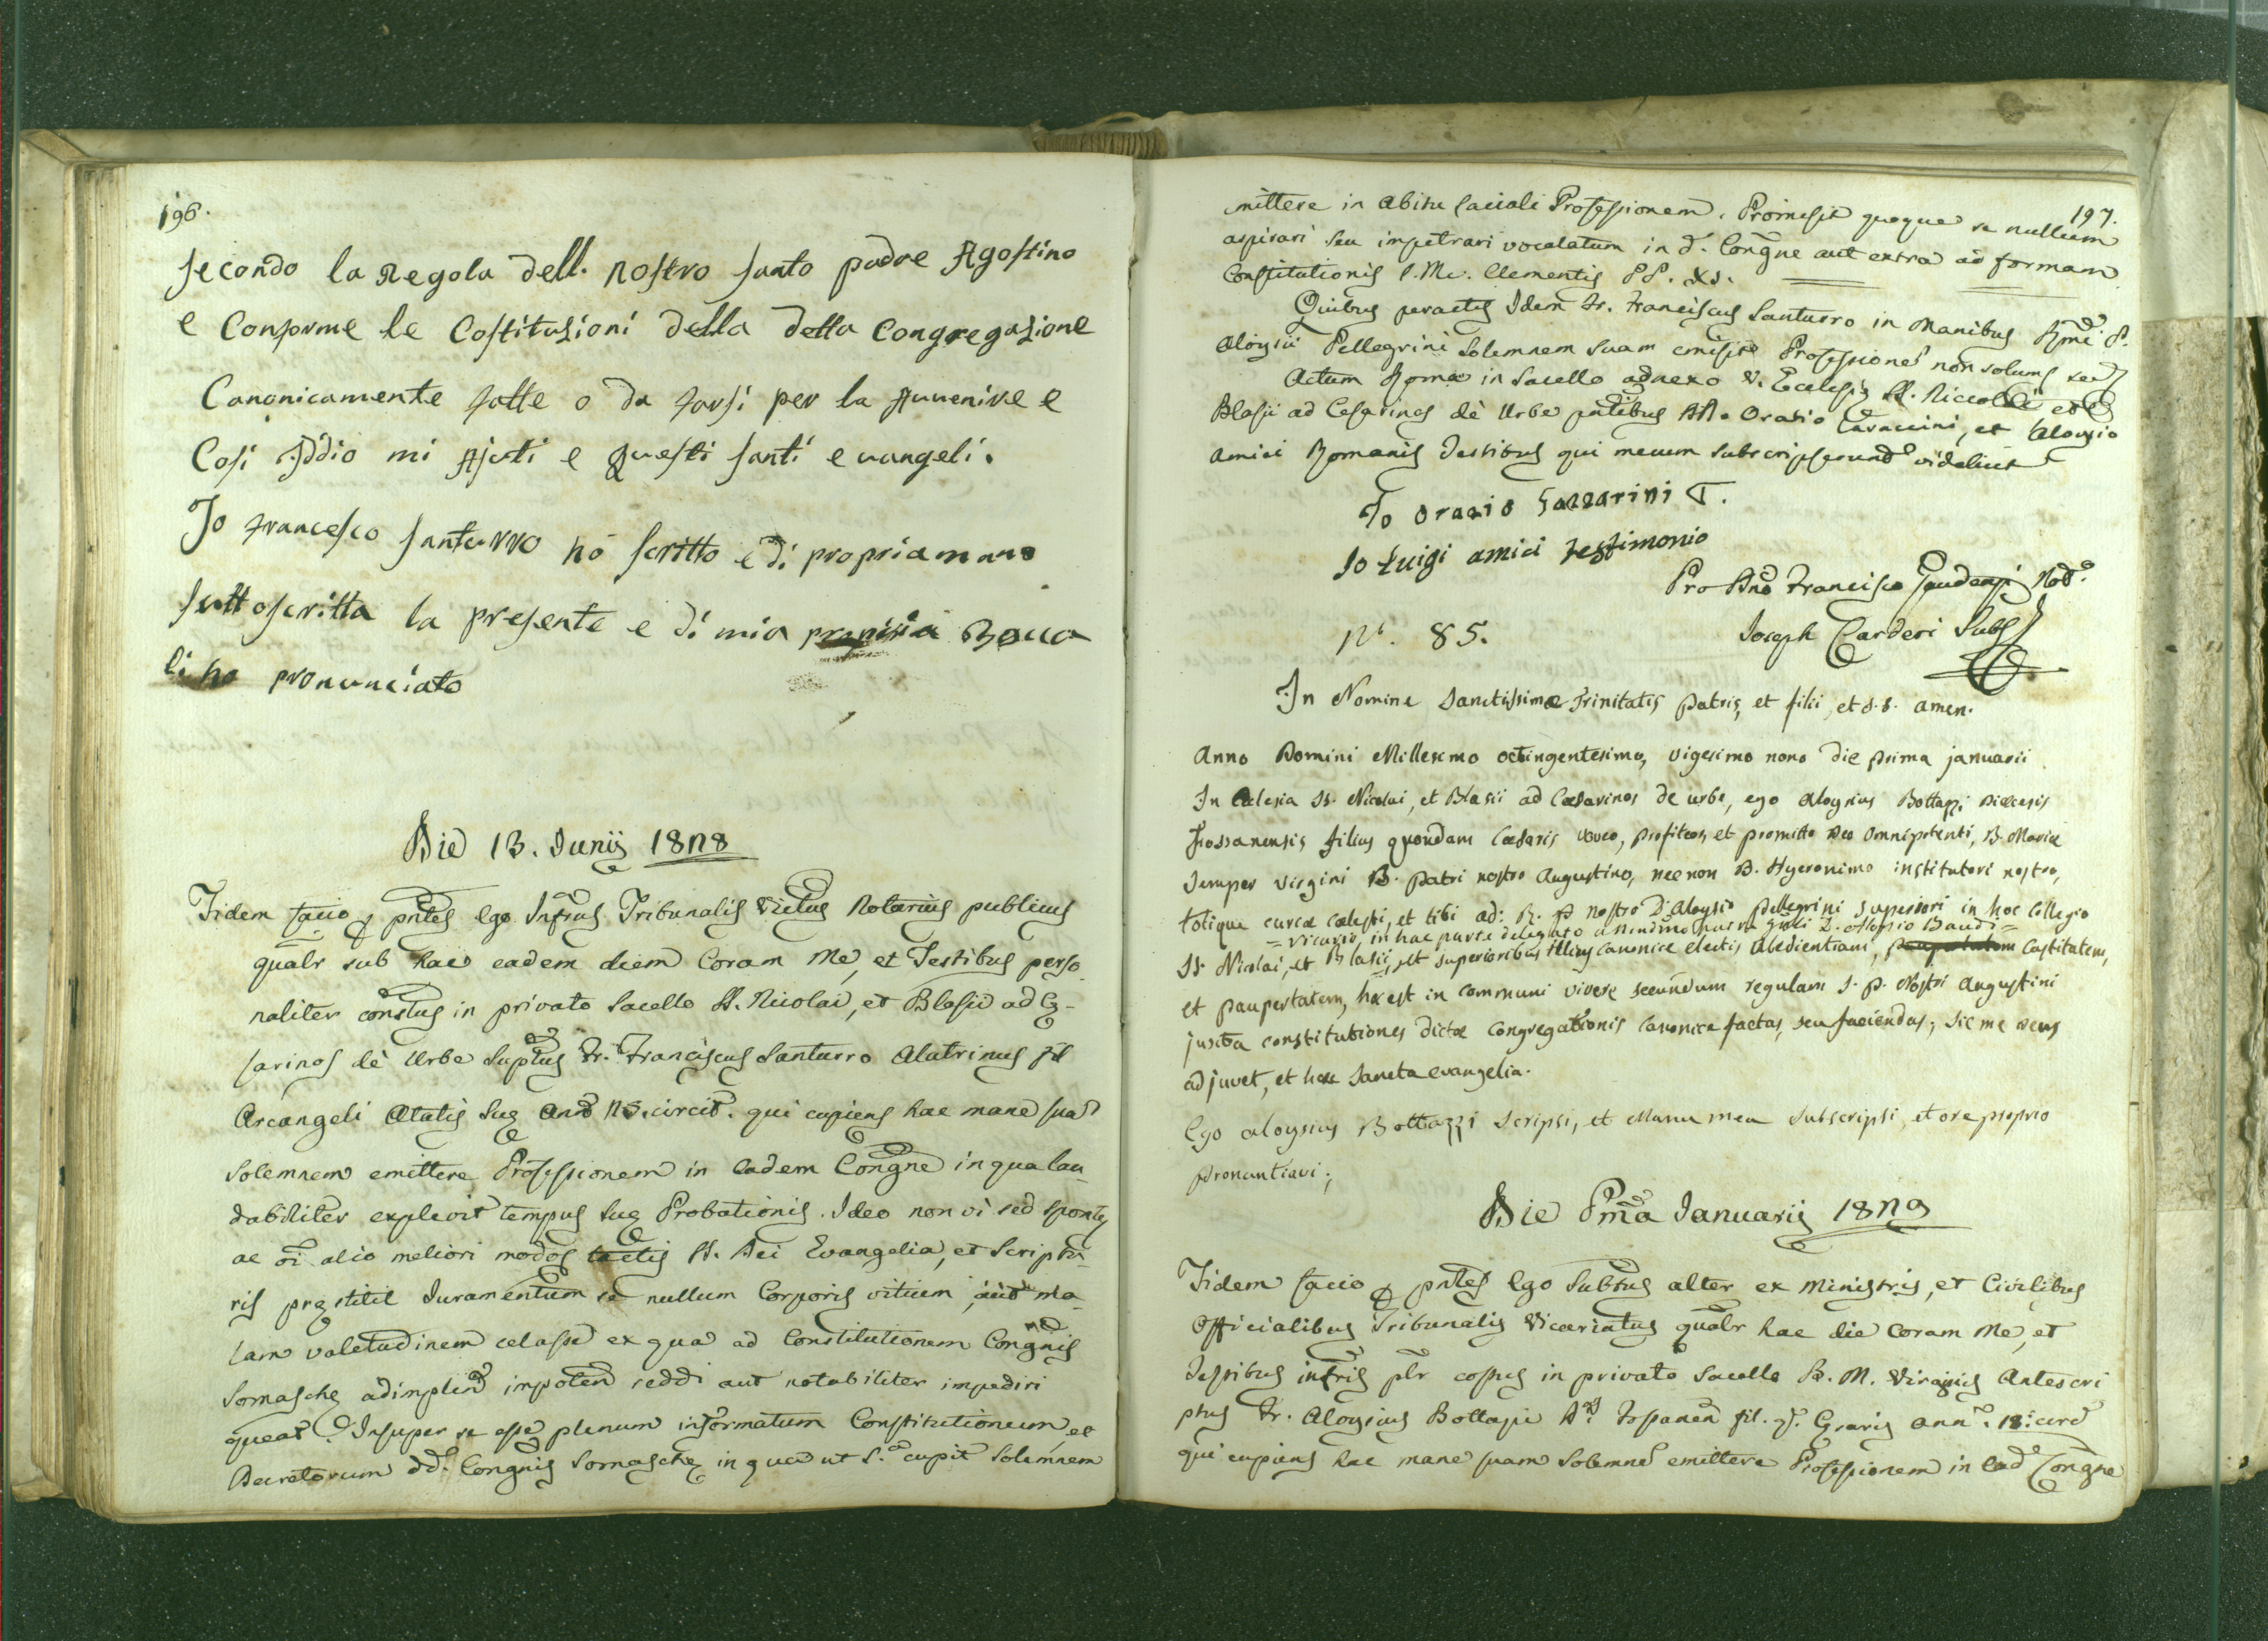 196.
secondo la Regola dell. nostro santo padre Agostino
e Conforme le Costituzioni della detta Congregazione
Canonicamente fatte o da farsi per la Auuenire e
Cosi Iddio mi Ajuti e questi santi euangeli.
Io francesco santurro hó scritto e di propria mano
suttoscritta la presente e di mia propria Bocca
li ho pronunciato
Die 13. Junij 1828
Fidem facio p pntes Ego Infrus Tribunalis Victus Notarius publicus
qualr sub hac eadem diem Coram Me, et Testibus perso
naliter constus in privato Sacello SS. Nicolai, et Blasii ad Cę-
sarinos dè Urbe Suptus Fr. Franciscus Santurro Alatrinus fil
Arcangeli Ætatis Suę Ann 25. circit. qui cupiens hac mane sua
Solemnem emittere Professionem in Eadem Congne in qua lau
dabiliter explevit tempus suę Probationis. Ideo non vi sed sponte
ac oi alio meliori modos tactis SS. Dei Evangelia, et Scriptu-
ris pręstitit Juramentum se nullum Corporis vitium, aut ma-
lam valetudinem celasse ex qua ad Constitutionem Congnis
Somaschę adimplend impoten reddi aut notabiliter impediri
queat. Insuper se esse plenum informatum Constitutionum et
Decretorum dd. Congnis Somaschę in qua ut S. cupit Solemnem
197.
mittere in Abitu Laicali Professionem. Promisit quoque se nullum
aspirari seu impetrari vocalatum in d. Congne aut extra ad formam
Constitutionis S. Me. Clementis PP. XI.
Quibus peractis Idem Fr. Franciscus Santurro in Manibus Rmi P.
Aloysii Pellegrini Solemnem Suam emisit Professione non solum sed
Actum Romæ in Sacello adnexo V. Ecclesię SS. Niccolai et
Blasii ad Cesarinos dè Urbe pntibus DD. Orazio Lazzarini, et Aloysio
Amici Romanis Testibus qui mecum subscripserunt videlicet
Io Orazio Lazzarini T.
Io Luigi amici testimonio
Pro Dno Francisco Gaudenzi Not.
Joseph Carderi Subs
N. 85.
In Nomine Sanctissimæ Trinitatis Patris, et filii, et S.S. amen.
Anno Domini Millesimo octingentesimo, vigesimo nono die prima januarii
In Eclesia SS. Nicolai, et Blasii ad Cæsarinos de urbe, ego Aloysius Bottazzi Diœcesis
Fossanensis filius quondam Cæsaris voveo, profiteor, et promitto Deo Omnipotenti, B. Mariæ
Semper virgini B. Patri nostro Augustino, nec non B. Hyeronimo institutori nostro,
totique curiæ cælesti, et tibi ad: R. P. nostro D. Aloysio Pellegrini superiori in hoc Collegio
= vicario in hac parte delegato a Rndmo Gnli D. Aloysio Baudi =
SS. Nicolai, et Blasii, et superioribus illius canonice electis Obedientiam, paupertatem Castitatem,
et paupertatem, hoc est in communi vivere secundum regulam S. P. Nostri Augustini
juxta constitutiones dictæ Congregationis Canonice factas, seu faciendas; Sic me Deus
adjuvet, et hæc Sancta evangelia.
Ego Aloysius Bottazzi Scripsi, et Manu mea Subscripsi, et ore proprio
pronuntiavi;
Die Pma Januarij 1829
Fidem facio p pntes Ego Subtus alter ex Ministris, et Civilibus
Officialibus Tribunalis Vicariatus qualr hac die Coram Me, et
Testibus infris plr costus in privato Sacello B. M. Virginis Antescri
ptus Fr. Aloysius Bottazzi D. Fossanen fil. q. Cęsaris Ann. 18. circ
qui cupiens hac mane suam Solemne emittere Professionem in Ead Congne